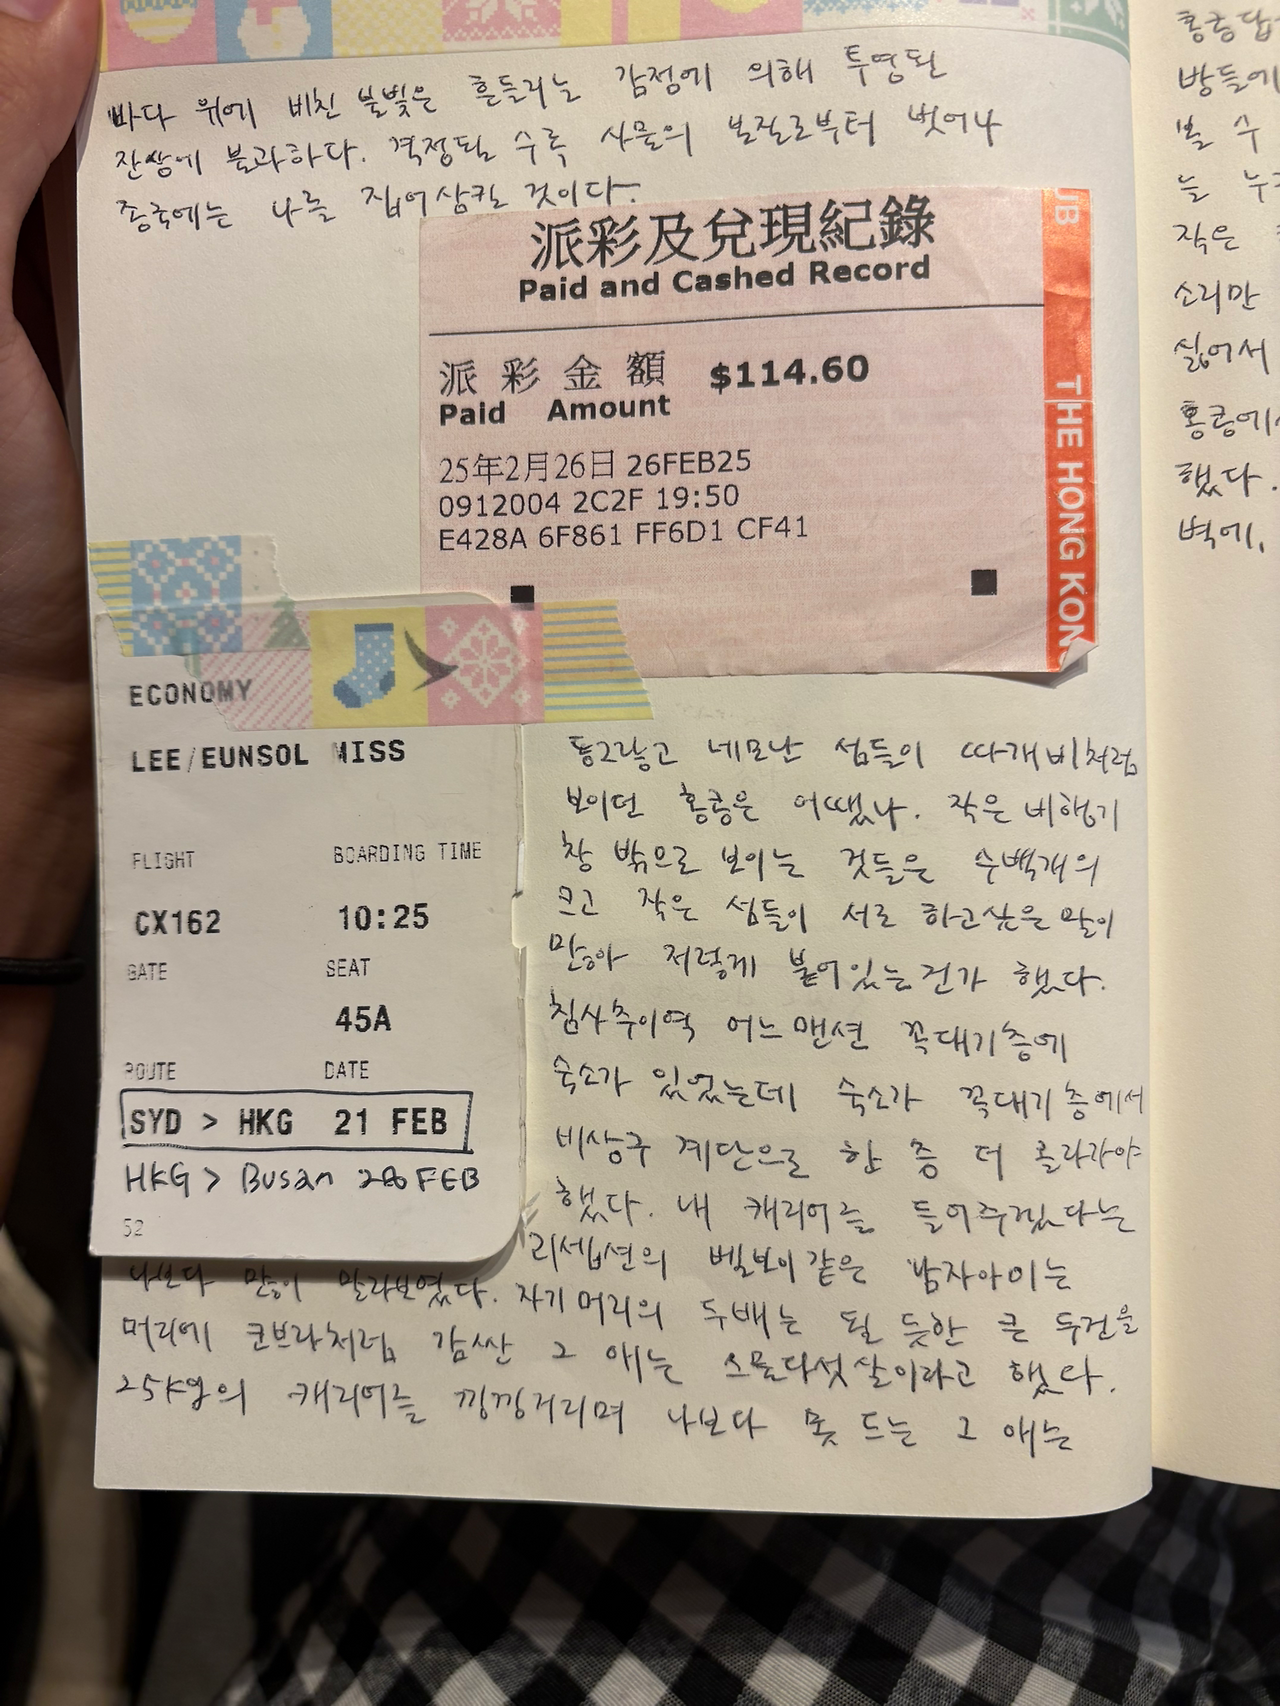 바다 위에 비친 불빛은 흔들리는 감정에 의해 투영된
잔상에 불과하다. 격정될 수록 사물의 본질로부터 벗어나
종국에는 나를 집어삼킬 것이다.
派彩及兌現紀錄
Paid and Cashed Record
派彩金額 $114.60
Paid Amount
25年2月26日 26FEB25
0912004 2C2F 19:50
E428A 6F861 FF6D1 CF41
THE HONG KON
ECONOMY
LEE/EUNSOL MISS
FLIGHT BOARDING TIME
CX162 10:25
GATE SEAT
45A
ROUTE DATE
SYD > HKG 21 FEB
HKG > Busan 28 FEB
52
동그랗고 네모난 섬들이 따개비처럼
보이던 홍콩은 어땠나. 작은 비행기
창 밖으로 보이는 것들은 수백개의
크고 작은 섬들이 서로 하고싶은 말이
많아 저렇게 붙어있는건가 했다.
침사추이역 어느 맨션 꼭대기층에
숙소가 있었는데 숙소가 꼭대기 층에서
비상구 계단으로 한 층 더 올라가야
했다. 내 캐리어를 들어주겠다는
리셉션의 벨보이같은 남자아이는
나보다 많이 말라보였다. 자기 머리의 두배는 될 듯한 큰 두건을
머리에 코브라처럼 감싼 그 애는 스물다섯살이라고 했다.
25kg의 캐리어를 낑낑거리며 나보다 못 드는 그 애는
홍콩
방들에
볼 수
는 누
작은
소리만
싫어서
홍콩에
했다.
벽에,